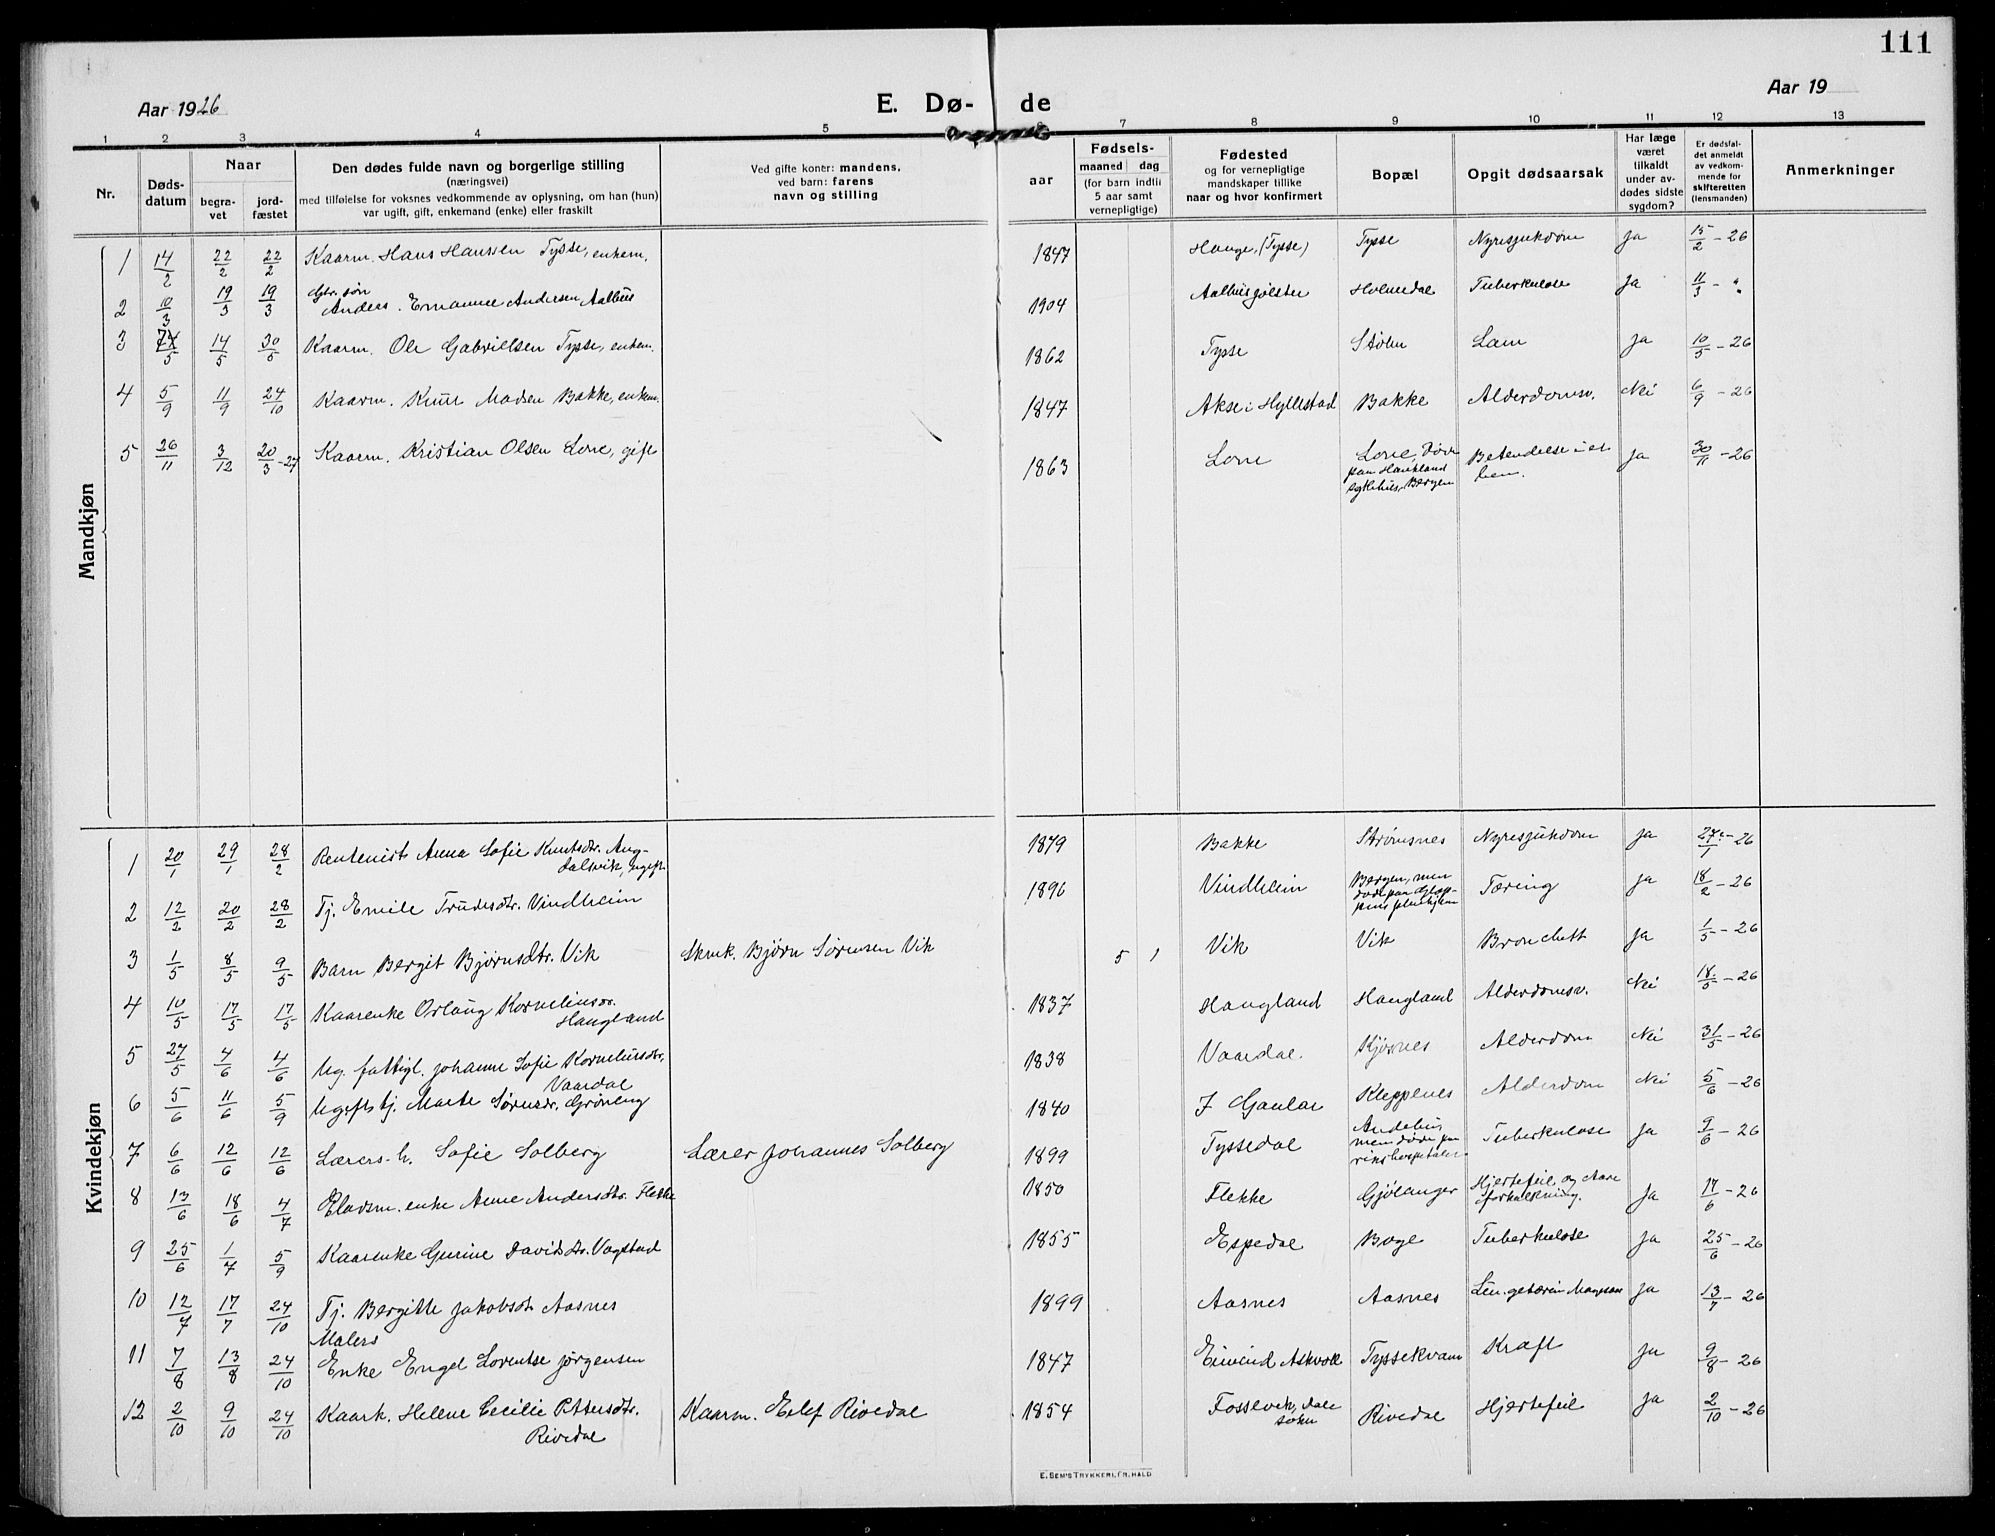 111
Aar 1926
E. Dø- de
Aar 19
1 2 3 4 5 6 7 8 9 10 11 12 13
Nr.
Døds-
datum
Naar
begra-
vet
jord-
fæstet
Den dødes fulde navn og borgerlige stilling
(næringsvei)
med tilføielse for voksnes vedkommende av oplysning, om han (hun)
var ugift, gift, enkemand (enke) eller fraskilt
Ved gifte koner: mandens,
ved barn: farens
navn og stilling
aar
Fødsels-
maaned dag
(for barn indtil
5 aar samt
vernepligtige)
Fødested
og for vernepligtige
mandskaper tillike
naar og hvor konfirmert
Bopæl
Opgit dødsaarsak
Har læge
været
tilkaldt
under av-
dødes sidste
sygdom?
Er dødsfal-
det anmeldt
av vedkom-
mende for
skifteretten
(lensmanden)
Anmerkninger
Mandkjøn
1 14/2 22/2 22/2 Kaarm. Hans Hanssen Tysse, enkem. 1847 Hauge, (Tysse) Tysse Nyresjukdom Ja 15/2 - 26
2 10/3 19/3 19/3 Gbr. søn
Anders. Emanuel Andersen Aalhus 1904 Aalhus Jølster Holmedal Tuberkulose Ja 11/3 - "
3 /5 14/5 30/5 Kaarm. Ole Gabrielsen Tysse, enkem. 1862 Tysse Stølen Lam Ja 10/5 - 26
4 5/9 11/9 24/10 Kaarm. Knut Madsen Bakke, enkem. 1847 Akse i Hyllestad Bakke Alderdomsv. Nei 6/9 - 26
5 26/11 3/12 20/3 - 27 Kaarm. Kristian Olsen Lone, gift 1863 Lone Lone, døde
paa Haukland
sykehus, Bergen Betendelse i et
ben. Ja 30/11 - 26
Kvindekjøn
1 20/1 29/1 28/2 Rentenist Anna Sofie Knutsdtr. Ang-
dalsvik, ugift. 1879 Bakke Strømsnes Nyresjukdom Ja 27/1 - 26
2 12/2 20/2 28/2 Tj. Emile Trudesdtr. Vindheim 1896 Vindheim Bergen, men
døde paa Glop-
pens pleiehjem Tæring Ja 18/2 - 26
3 1/5 8/5 9/5 Barn Bergit Bjørnsdtr. Vik Skmk. Bjørn Sørensen Vik 5 1 Vik Vik Bronchett Ja 1/5 - 26
4 10/5 17/5 17/5 Kaarenke Orlaug Korneliusdr.
Haugland 1837 Haugland Haugland Alderdomsv. Nei 18/5 - 26
5 27/5 4/6 4/6 Ug. fattigl. Johanne Sofie Korneliusdtr.
Vaardal 1838 Vaardal. Kjøsnes Alderdom Nei 31/5 - 26
6 5/6 11/6 5/9 Ugift tj. Marte Sørensdr. Grøneng 1840 I Gaular Kleppenes Alderdom Nei 5/6 - 26
7 6/6 12/6 12/6 Lærers h. Sofie Solberg Lærer Johannes Solberg 1899 Tyssedal Andebu,
men døde paa
rikshospitalet Tuberkulose Ja 9/6 - 26
8 13/6 18/6 4/7 enke Anne Andersdtr. Flekke 1850 Flekke Gjølanger Hjertefeil og Aare
forkalkning. Ja 17/6 - 26
9 25/6 1/7 5/9 Kaarenke Gurine Davidsdtr. Vagstad 1855 Espedal Boge Tuberkulose Ja 25/6 - 26
10 12/7 17/7 24/10 Tj. Bergitte Jakobsdtr. Aasnes 1899 Aasnes Aasnes Ja 13/7 - 26
11 7/8 13/8 24/10 Malers
Enke Engel Lorentse Jørgensen 1847 Eivind Askvoll Tyssekvam Kræft Ja 9/8 - 26
12 2/10 9/10 24/10 Kaark. Helene Cecilie Pettersdtr.
Rivedal Kaarm. Elef Rivedal 1854 Fossevik, Dale
sokn Rivedal Hjertefeil Ja 2/10 - 26
E. SEM'S TRYKKERI, FR.HALD